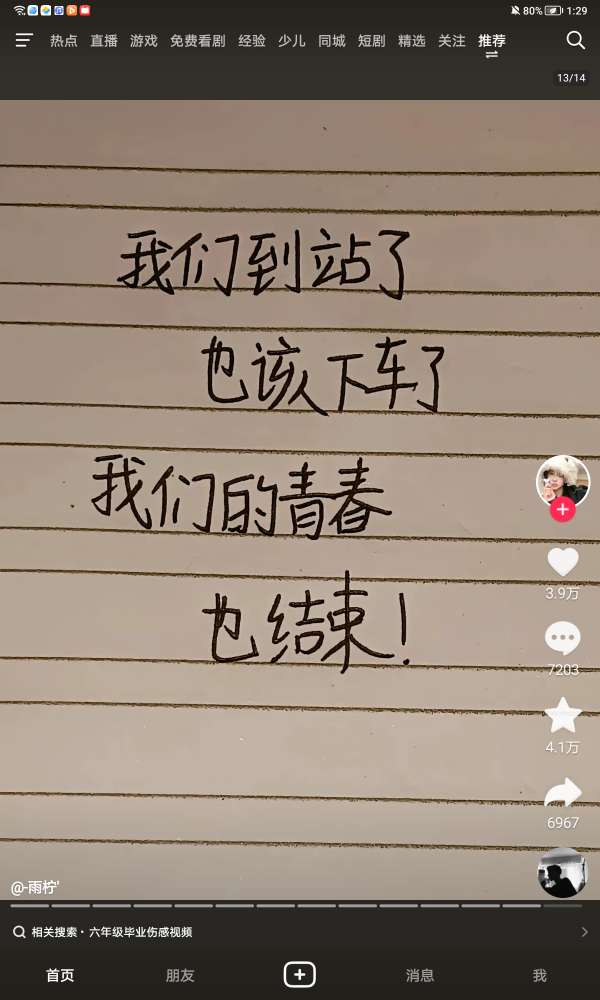 80% 1:29
热点 直播 游戏 免费看剧 经验 少儿 同城 短剧 精选 关注 推荐
13/14
我们到站了
也该下车了
我们的青春
也结束！
3.9万
7203
4.1万
6967
@-雨柠'
相关搜索·六年级毕业伤感视频
首页 朋友 消息 我